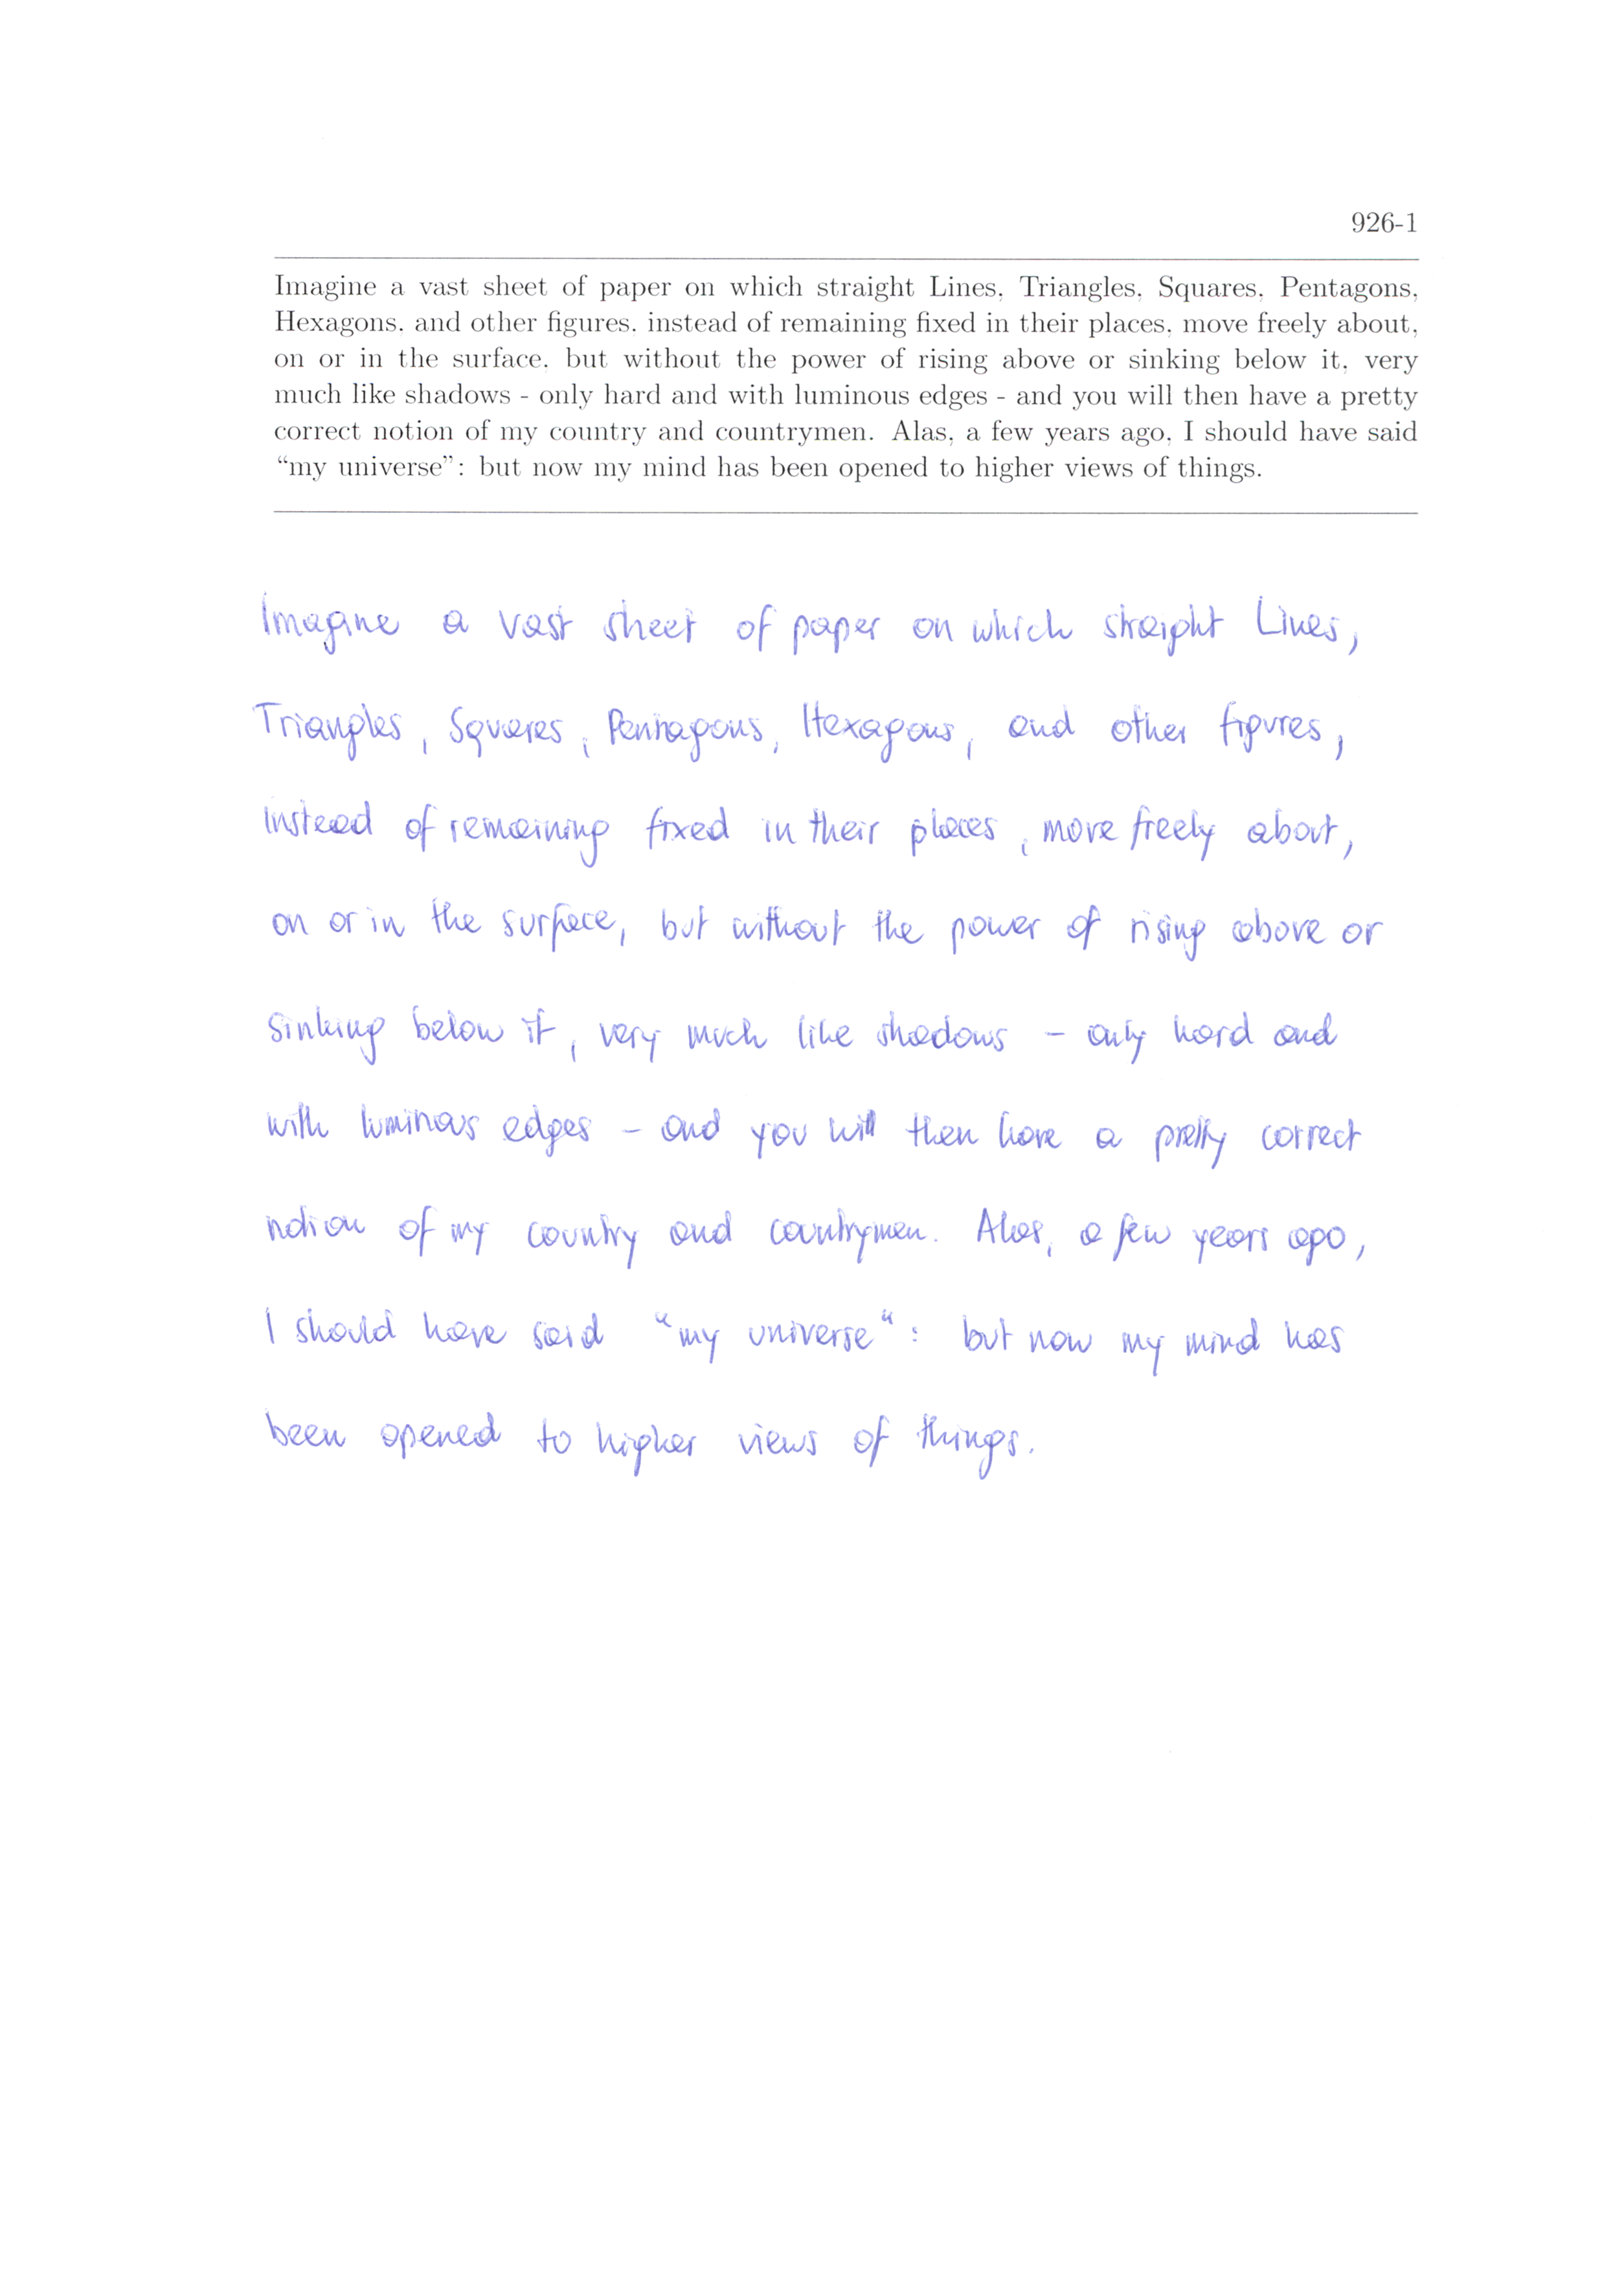 926-1
Imagine a vast sheet of paper on which straight Lines, Triangles, Squares, Pentagons,
Hexagons, and other figures, instead of remaining fixed in their places, move freely about,
on or in the surface, but without the power of rising above or sinking below it, very
much like shadows - only hard and with luminous edges - and you will then have a pretty
correct notion of my country and countrymen. Alas, a few years ago, I should have said
“my universe”: but now my mind has been opened to higher views of things.
Imagine a vast sheet of paper on which straight Lines,
Triangles, Squares, Pentagons, Hexagons, and other figures,
instead of remaining fixed in their places, move freely about,
on or in the surface, but without the power of rising above or
sinking below it, very much like shadows - only hard and
with luminous edges - and you will then have a pretty correct
notion of my country and countrymen. Alas, a few years ago,
I should have said “my universe“: but now my mind has
been opened to higher views of things.